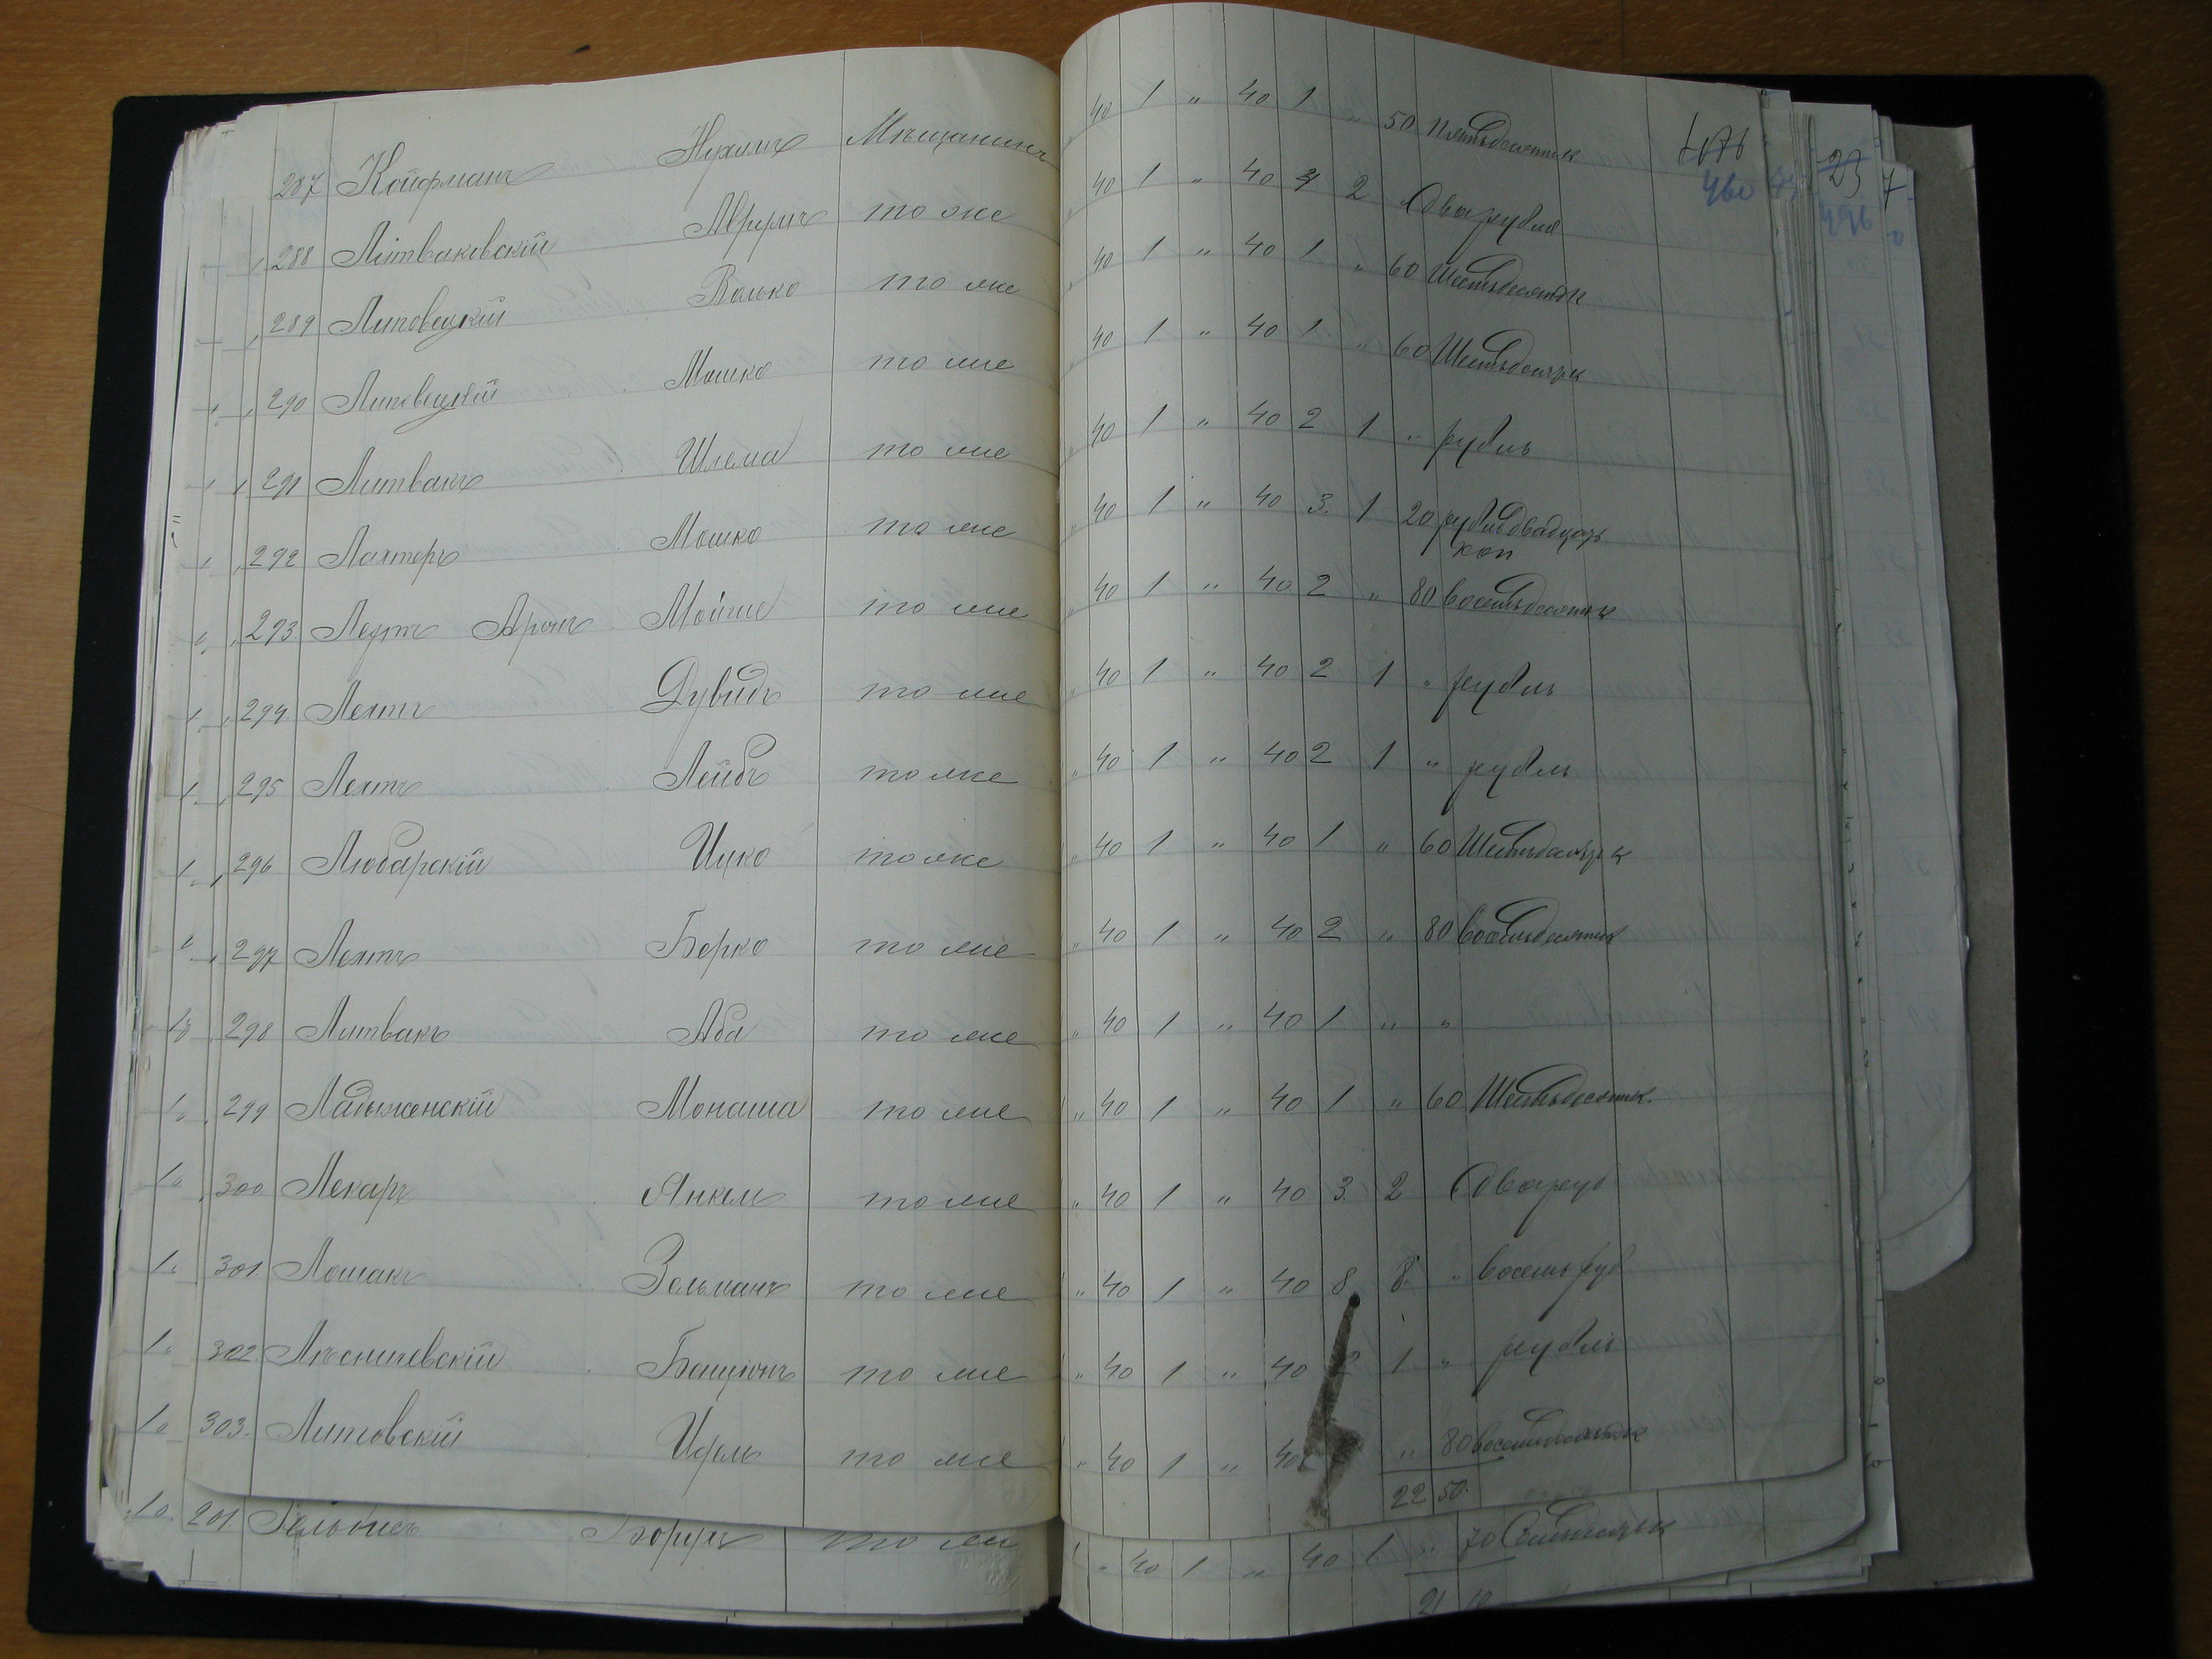 287 Койфманъ Нухимъ Мѣщанинъ „ 40 1 „ 40 1 „ 50 пятьдесятъ к
288 Литваковскій Аврумъ то же „ 40 1 „ 40 2 Два рубля
289 Липовецкій Волько то же „ 40 1 „ 40 1 „ 60 Шестьдесятъ к
290 Липовецкій Мошко то же „ 40 1 „ 40 1 „ 60 Шестьдесятъ к
291 Литвакъ Шлема то же „ 40 1 „ 40 2 1 „ рубль
292 Лахтеръ Мошко то же „ 40 1 „ 40 3 1 20 рубль двадцать
коп
293 Лехтъ Аронъ Мойше то же „ 40 1 „ 40 2 „ 80 восемьдесятъ к
294 Лехтъ Дувидъ то же „ 40 1 „ 40 2 1 „ рубль
295 Лехтъ Лейбъ то же „ 40 1 „ 40 2 1 „ рубль
296 Любарскій Ицко то же „ 40 1 „ 40 1 „ 60 Шестьдесятъ к
297 Лехтъ Борко то же „ 40 1 „ 40 2 „ 80 восемьдесятъ к
298 Литвакъ Аба то же „ 40 1 „ 40 1 „ „
299 Ладыженскій Монаша то же „ 40 1 „ 40 1 „ 60 Шестьдесятъ к.
300 Лекарь Янкель то же „ 40 1 „ 40 3 2 Два руб
301 Лошакъ Зельманъ то же „ 40 1 „ 40 8 8 „ восемь руб
302 Лѣсничевскій Бенционъ то же „ 40 1 „ 40 1 „ рубль
303. Литовскій Идель то же „ 40 1 „ 40 „ 80 восемьдесятъ к
22 50
201 Борухъ то же „ 40 1 „ 40 1 „ 70
460
23
496
7